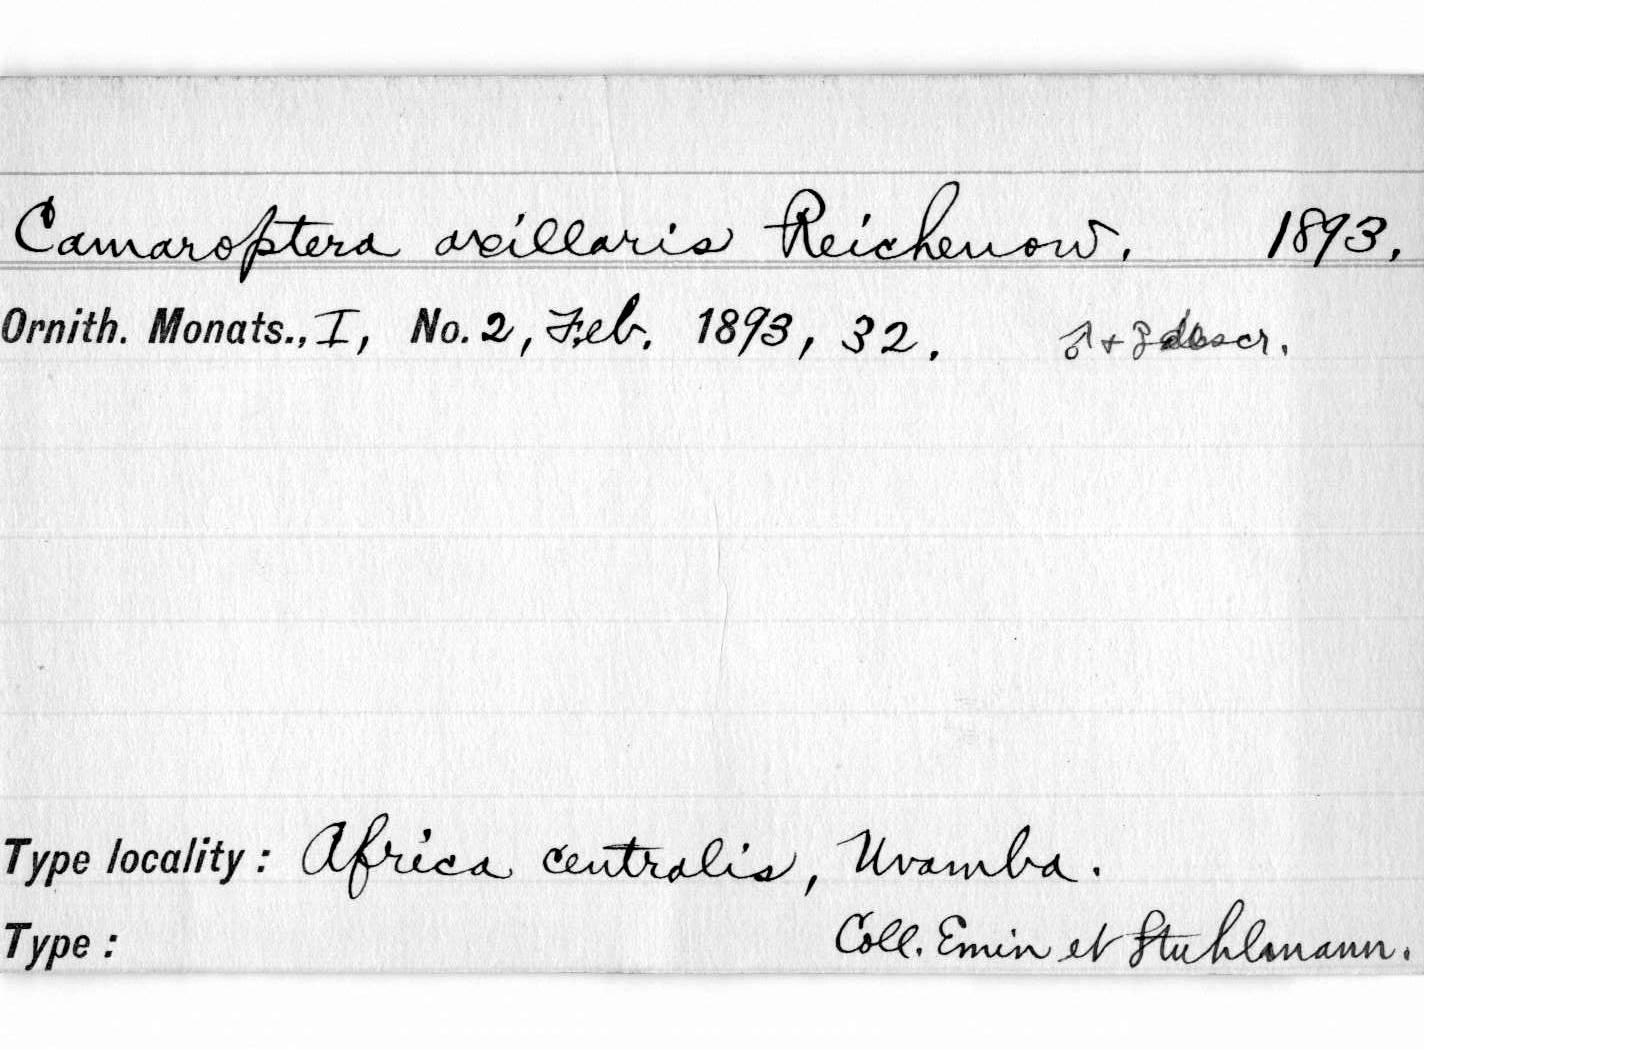 Camaroptera axillaris Reichenow. 1893.
Ornith. Monats., I, No. 2, Feb. 1893, 32. ♂ + ♀ descr.
Type locality: Africa centralis, Uvamba.
Type: Coll. Emin et Stuhlmann.